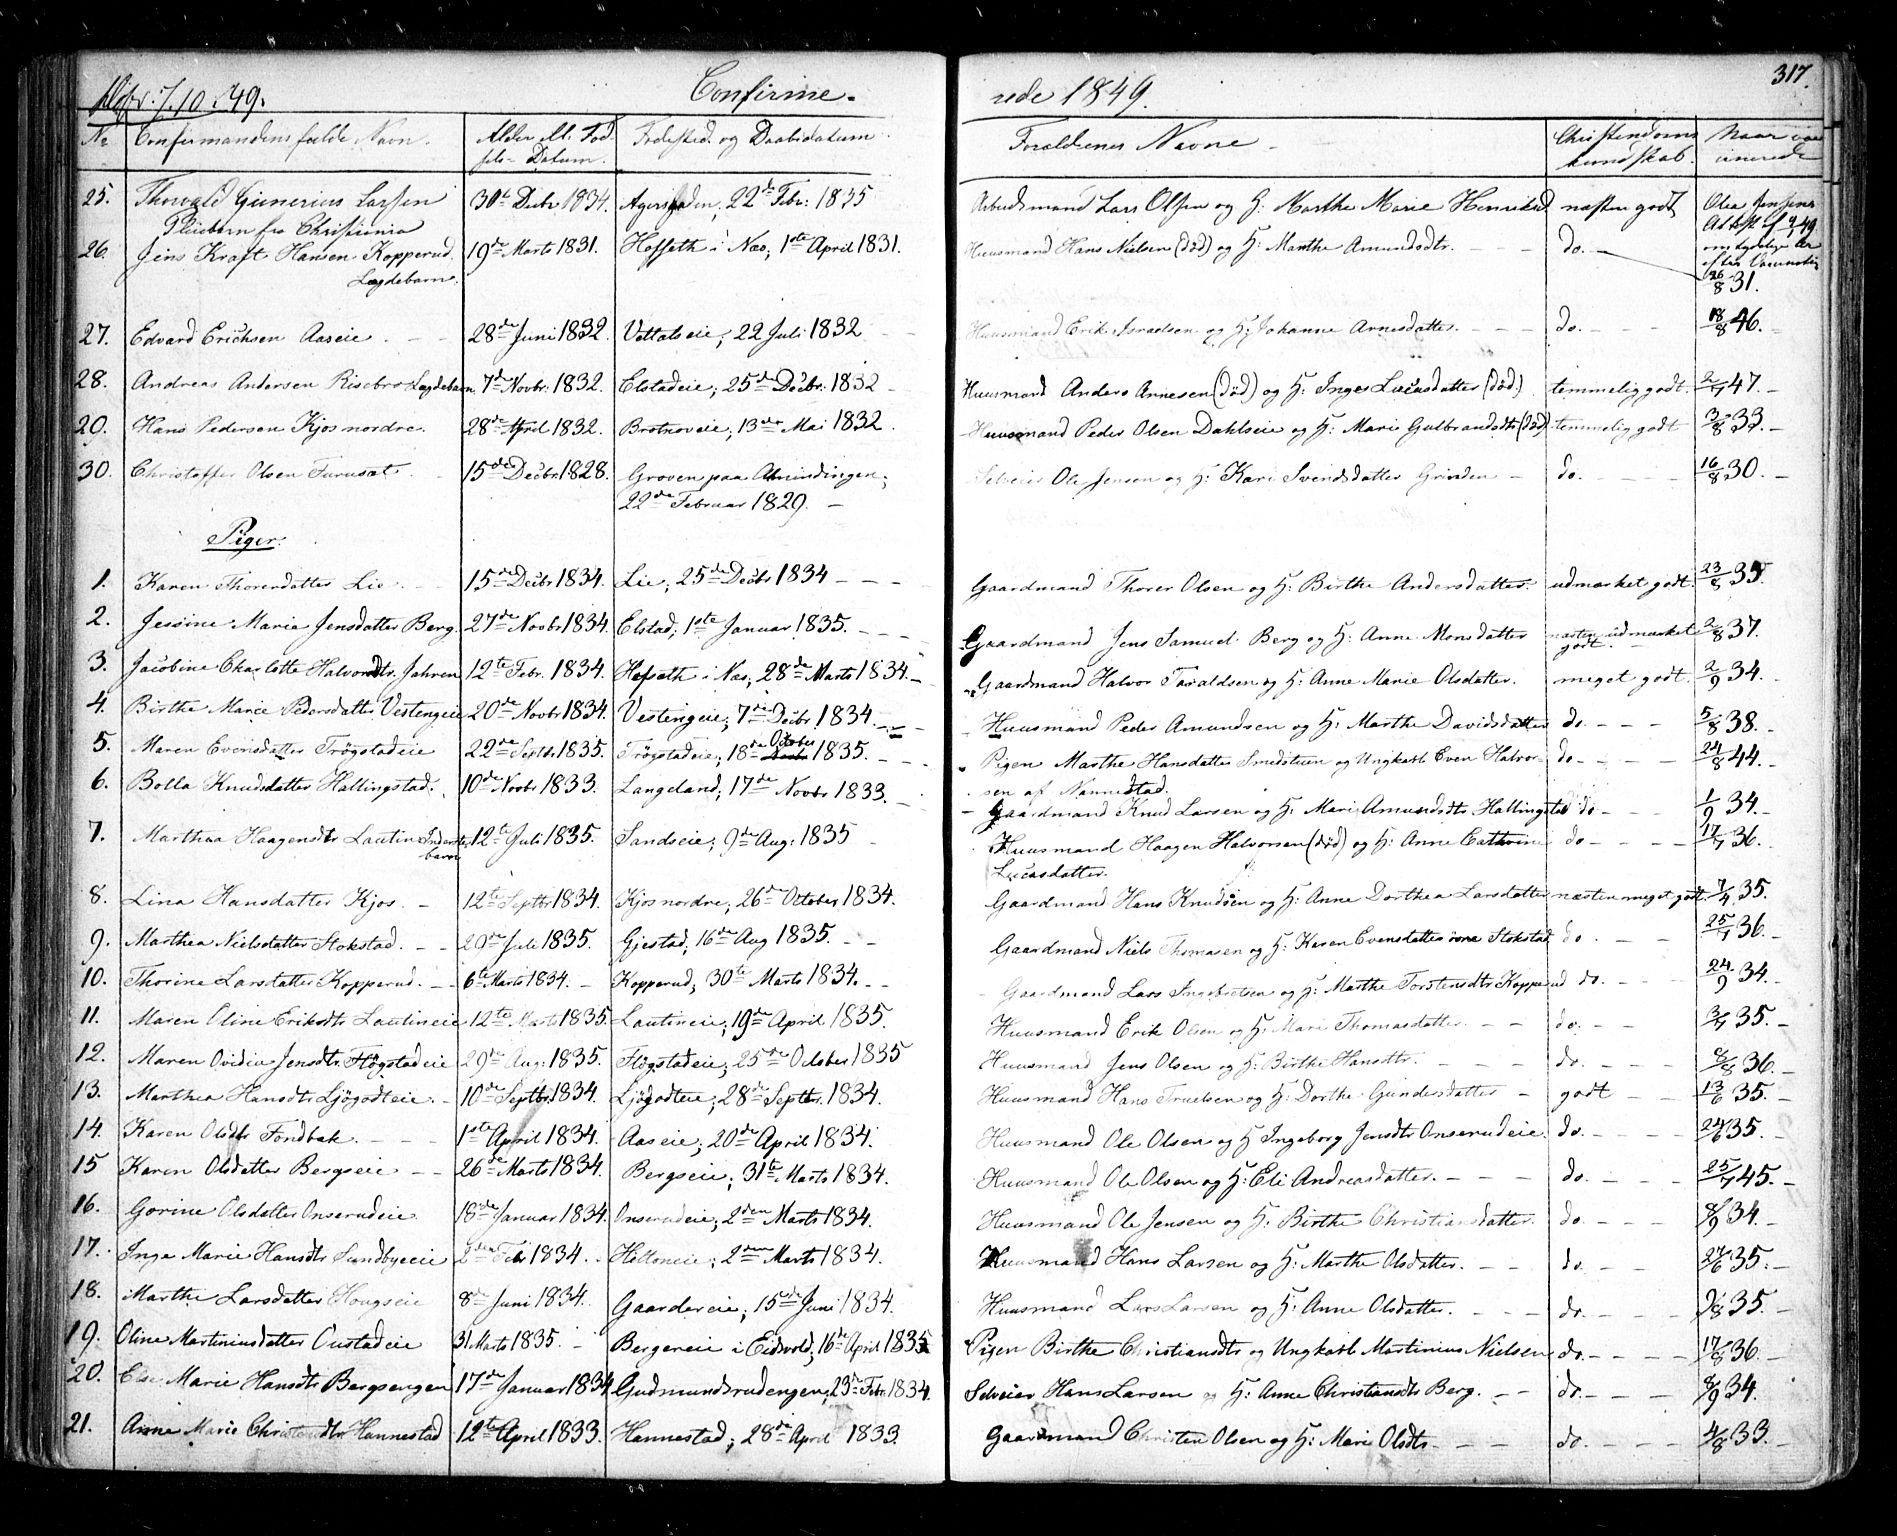 317.
Confirme- rede 1849.
7.10.49.
No Confirmandens fulde Navn. Alder ell. Fød- Fødested og Daabsdatum Forældrenes Navne Christendoms Naar vac-
sels-Datum. kundskab. cinerede
25. Thorvald Gunerius Larsen 30te Decbr 1834. 22de Febr: 1835 Arbeidsmand Lars Olsen og H: Marthe Marie næsten godt
Pleiebarn fra Christiania
26. Jens Kraft Hansen Kopperud. 19de Marts 1831. Hoffseth i Næs, 1ste April 1831. Huusmand Hans Nielsen (død) og H: Marthe Amundsdtr. do.
Lægdebarn. 26/8 31.
27. Edvard Erichsen Aaseie 28de Juni 1832. 22 Juli 1832 Huusmand Erik Israelsen og H: Johanne Arnesdatter. do. 18/8 46.
28. Andreas Andersen Risebro Lægdebarn 7de Novbr. 1832. Elstadeie, 25de Decbr. 1832 Huusmand Anders Annesen (død) og H: Inger Lucasdatter (død.) temmelig godt. 2/7 47.
20. Hans Pedersen Kjos nordre. 28de April 1832. 13de Mai 1832. Huusmand Peder Olsen Dahlseie og H: Marie Gulbrandsdtr (død) temmelig godt 3/8 33.
30. Christoffer Olsen Furusat 15de Decbr. 1828. Groven paa Almindingen, Selveier Ole Jensen og H: Kari Svendsdatter Grinden do. 16/8 30.
22de Februar 1829.
Piger:
1. Karen Thorersdatter Lie 15de Decbr 1834. Lie, 25de Decbr 1834 Gaardmand Thorer Olsen og H: Birthe Andersdatter. udmærket godt. 23/8 35.
2. Jessine Marie Jensdatter Berg. 27de Novbr 1834. Elstad, 1ste Januar 1835. Gaardmand Jens Samuel. Berg og H: Anne Monsdatter næsten udmærket 2/8 37.
godt.
3. Jacobine Charlotte Halvorsdtr. Jahren 12te Febr. 1834. Hofseth i Næs, 28de Marts 1834. Gaardmand Halvor Taraldsen og H: Anne Marie Olsdatter. meget godt. 2/9 34.
4. Birthe Marie Pedersdatter Vestengeie 20de Novbr 1834. Vestengeie, 7de Decbr. 1834. Huusmand Peder Amundsen og H: Marthe Davidsdatter do. 5/8 38.
5. Maren Evensdatter Trøgstadeie 22de Septbr 1835. Trøgstadeie, 18de October 1835. Pigen Marthe Hansdatter Smedstuen og Ungkarl Even Halvor- do 24/8 44.
sen af Nannestad.
6. Bolla Knudsdatter Hallingstad. 10de Novbr 1833. Langeland, 17de Novbr 1833. Gaardmand Knud Larsen og H: Mari Amundsdtr Hallingstad do 1/9 34.
7. Marthea Haagensdtr Lautin 12te Juli 1835. Sandseie, 9de Aug: 1835 Huusmand Haagen Halvorsen (død) og H: Anne Cathrine do 17/7 36.
barn Lucasdatter.
8. Lina Hansdatter Kjos. 12te Septbr 1834. Kjos nordre, 26de October 1834. Gaardmand Hans Knudsen og H: Anne Dorthea Larsdatter næsten meget godt. 7/4 35.
9. Marthea Nielsdatter Stokstad. 20de Juli 1835. Gjestad, 16de Aug 1835. Gaardmand Niels Thomasen og H: Karen Evensdatter øvre Stokstad do. 25/7 36.
10. Thorine Larsdatter Kopperud. 6te Marts 1834. Kopperud, 30te Marts 1834. Gaardmand Lars Ingebretsen og H: Marthe Torstensdtr Kopperud do. 24/9 34.
11. Maren Eline Eriksdtr Lautineie 12te Marts 1835 Lautineie, 19de April 1835. Huusmand Erik Olsen og H: Mari Thomasdatter do. 3/7 35.
12. Maren Ovidia Jensdtr. Fløgstadeie 29de Aug: 1835. Fløgstadeie, 25de October 1835 Huusmand Jens Olsen og H: Birthe Hansdtr. do. 8/8 36.
13. Marthea Hansdtr Ljøgodteie. 10de Septbr. 1834. Ljøgodteie, 28de Septbr. 1834. Huusmand Hans Truelsen og H: Dorthe Gundersdatter godt 13/6 35.
14. Karen Olsdtr Fondbak 1ste April 1834. Aaseie, 20de April 1834. Huusmand Ole Olsen og H Ingeborg Jensdtr Onserudeie. do. 24/6 35.
15 Karen Olsdatter Bergseie 26de Marts 1834. Bergseie, 31te Marts 1834. Huusmand Ole Olsen og H: Eli Andreasdatter. do. 25/7 45.
16. Gorine Olsdatter Onserudeie 18de Januar 1834. Onserudeie, 2den Marts 1834. Huusmand Ole Jensen og H: Birthe Christiansdatter. do. 8/9 34.
17. Inge Marie Hansdtr Sundbyeeie 2den Febr 1834. Holtoneie, 2den Marts 1834. Huusmand Hans Larsen og H: Marthe Olsdatter. do. 27/6 35.
18. Marthe Larsdatter Hougseie 8de Juni 1834. Gaardereie, 15de Juni 1834. Huusmand Lars Larsen og H: Anne Olsdatter. do. 9/8 35.
19. Oline Martiniusdatter Oustadeie 31 Marts 1835. Bergereie i Eidsvold, 16de April 1835 Pigen Birthe Christiansdtr og Ungkarl Martinius Nielsen do. 17/8 36.
20. Else Marie Hansdtr Bergsengen 17de Januar 1834 Gudmundsrudengen, 23de Febr. 1834. Selveier Hans Larsen og H: Anne Christiansdtr Berg. do. 8/9 34.
21. Anne Marie Christensdtr Hannestad 12te April 1833. Hannestad, 28de April 1833. Gaardmand Christen Olsen og H: Mari Olsdtr. do. 4/8 33.